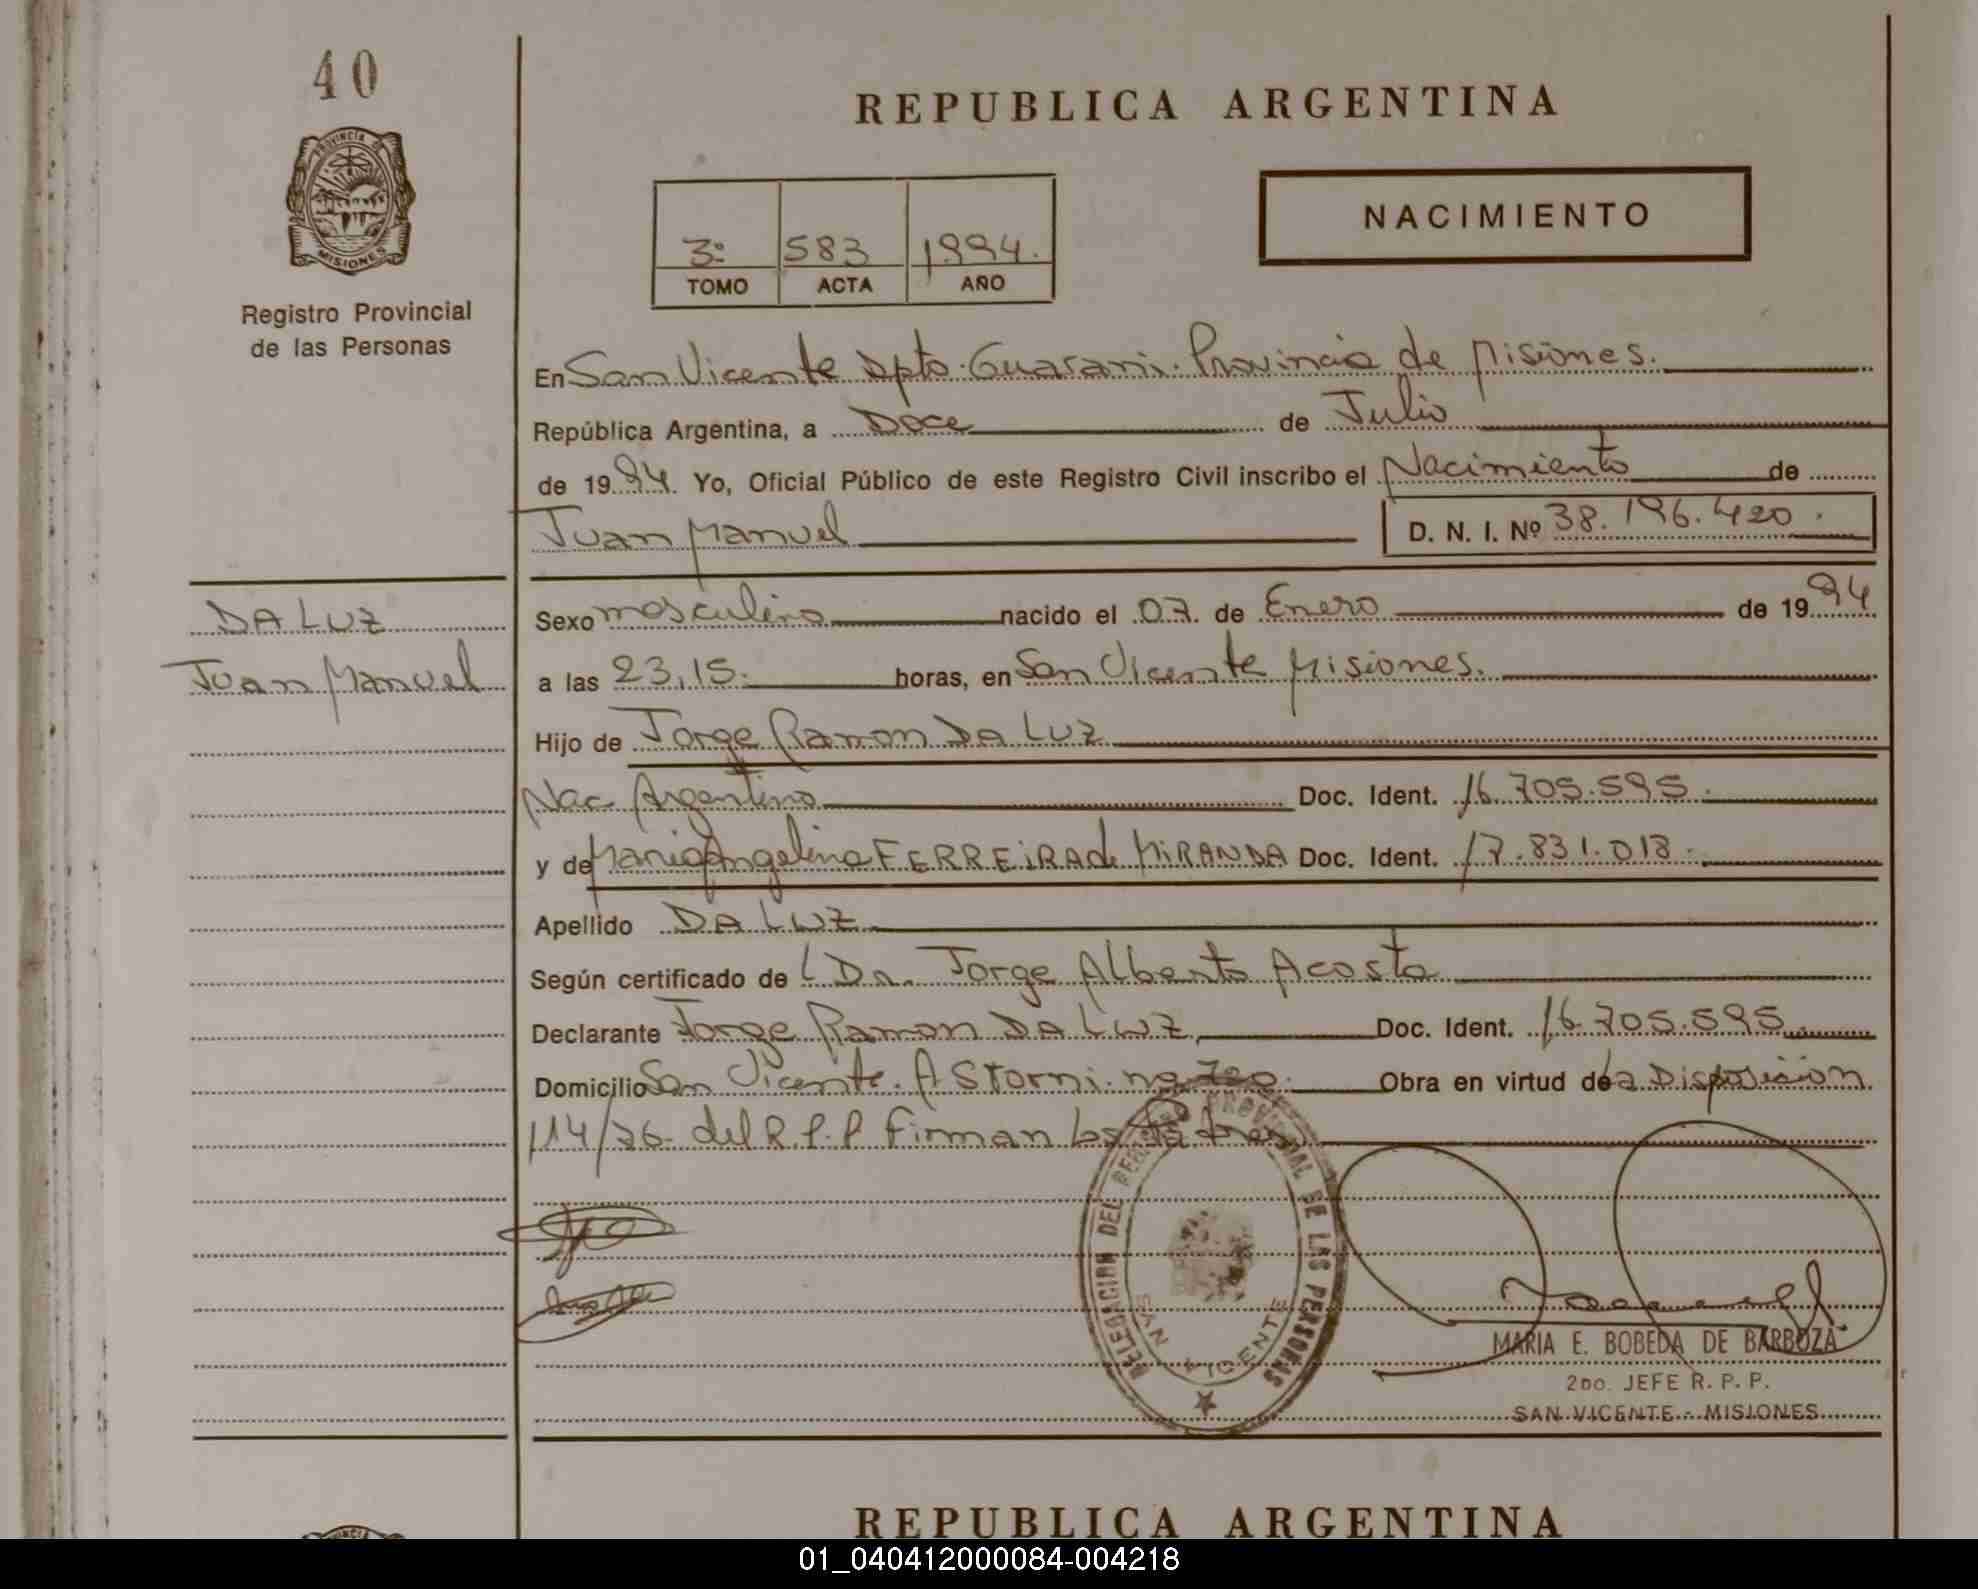 40
PROVINCIA DE
MISIONES
Registro Provincial
de las Personas
REPUBLICA ARGENTINA
3º 583 1994.
TOMO ACTA AÑO
NACIMIENTO
En San Vicente Dpto. Guarani. Provincia de Misiones.
República Argentina, a Doce de Julio
de 1994. Yo, Oficial Público de este Registro Civil inscribo el Nacimiento de
Juan Manuel D. N. I. Nº 38.196.420.
DA LUZ
Juan Manuel
Sexo masculino nacido el 07. de Enero de 1994
a las 23,15. horas, en San Vicente Misiones.
Hijo de Jorge Ramon DA LUZ
Nac Argentino Doc. Ident. 16.705.595.
y de Maria Angelina FERREIRA de MIRANDA Doc. Ident. 17.831.018.
Apellido DA LUZ
Según certificado de Dr. Jorge Alberto Acosta
Declarante Jorge Ramon DA LUZ Doc. Ident. 16.705.595
Domicilio San Vicente. A Storni. no 720. Obra en virtud de la Disposicion
114/76. del R.P.P Firman los Padres
DELEGACION DEL REGISTRO PROVINCIAL DE LAS PERSONAS
SAN VICENTE
MARIA E. BOBEDA DE BARBOZA
2DO. JEFE R. P. P.
SAN VICENTE - MISIONES
REPUBLICA ARGENTINA
01_040412000084-004218